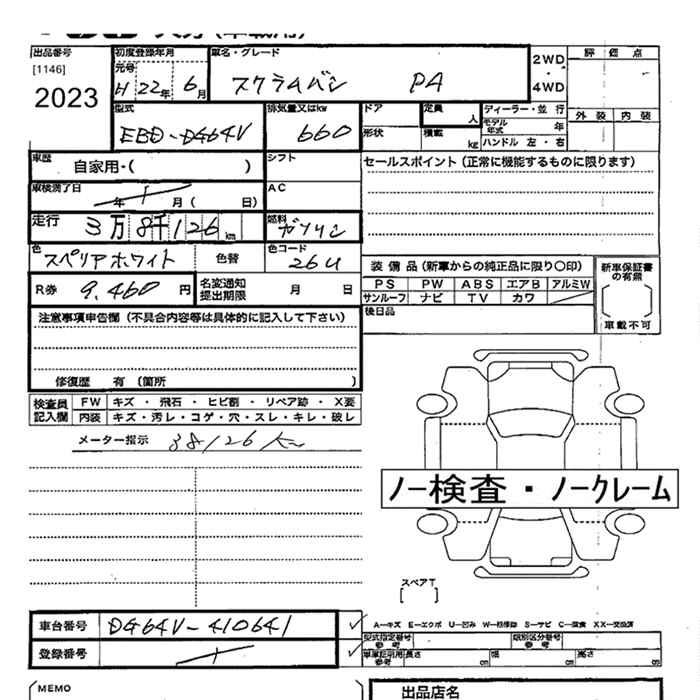 出品番号
[1146]
2023
初度登録年月
元号
H 22年 6月
車名・グレード
スクラムバン PA
2WD
・
4WD
評価点
外装 内装
型式
EBD-DG64V
排気量又はkw
660
ドア
形状
定員
人
積載
kg
ディーラー・並行
モデル年式 年
ハンドル 左・右
車歴
自家用・( )
シフト
セールスポイント(正常に機能するものに限ります)
車検満了日
年 月( 日)
AC
走行
3万8千126km
燃料
ガソリン
色
スペリアホワイト
色替
色コード
26U
装備品(新車からの純正品に限り〇印)
PS PW ABS エアB アルミW
サンルーフ ナビ TV カワ
新車保証書の有無
車載不可
R券 9,460円
名変通知
提出期限
月 日
後日品
注意事項申告欄(不具合内容等は具体的に記入して下さい)
修復歴 有〔箇所 〕
検査員
記入欄
FW キズ・飛石・ヒビ割・リペア跡・X要
内装 キズ・汚レ・コゲ・穴・スレ・キレ・破レ
メーター指示 38126km
ノー検査・ノークレーム
スペアT
車台番号 DG64V-410641
A―キズ E―エクボ U―凹み W―板修跡 S―サビ C―腐食 XX―交換済
登録番号
型式指定番号
参考
類別区分番号
参考
車庫証明用
参考
長さ cm 幅 cm 高さ cm
MEMO
出品店名